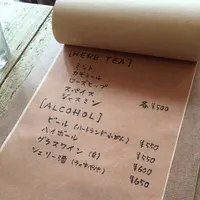 [HERB TEA]
ミント
カモミール
ローズヒップ
スパイス
ジャスミン 各¥500
[ALCOHOL]
ビール (ハートランド小瓶) ¥550
ハイボール ¥550
グラスワイン (白) ¥600
シェリー酒 ¥650